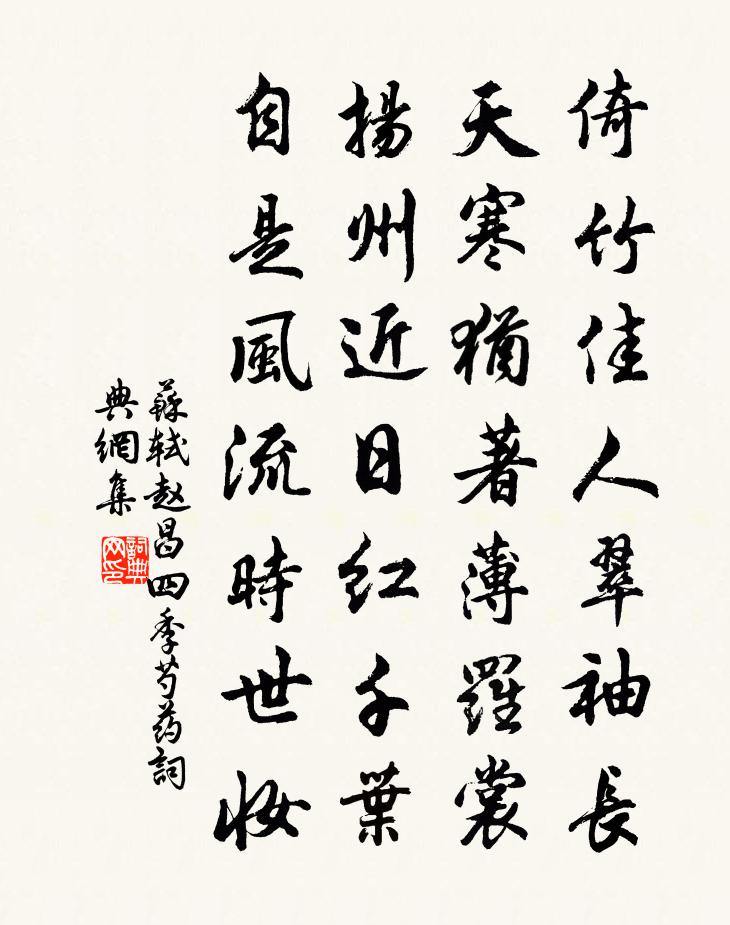 倚竹佳人翠袖長
天寒猶著薄羅裳
揚州近日紅千葉
自是風流時世妝
蘇軾赵昌四季芍药詞
典網集
詞典
网印